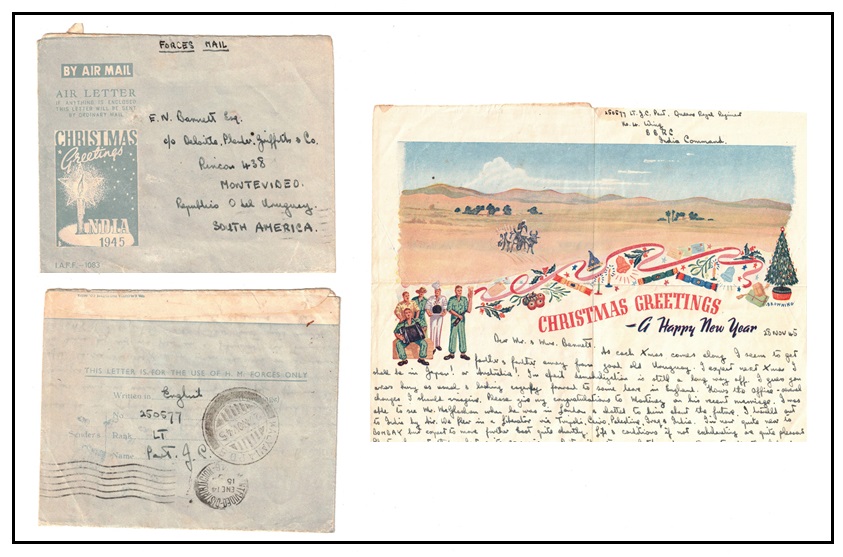 FORCES MAIL
BY AIR MAIL
AIR LETTER
IF ANYTHING IS ENCLOSED
THIS LETTER WILL BE SENT
BY ORDINARY MAIL
CHRISTMAS
Greetings
INDIA
1945
I.A.F.F.-1083
E. N. Bennett Esq.
c/o Deloitte, Plender, Griffiths & Co.
Rincon 438
MONTEVIDEO.
Republica O del Uruguay.
SOUTH AMERICA.
THIS LETTER IS FOR THE USE OF H. M. FORCES ONLY
Written in English
No. 250577
Sender's Rank LT
Name Part. J. C.
NOV 45
ENE 14
15
250577 LT. J.C. Part. Queens Royal Regiment
Wing
India Command.
CHRISTMAS GREETINGS
- A Happy New Year
BROWNING
28 NOV 45
Dear Mr. & Mrs. Bennett.
As each Xmas comes along I seem to get
further & further away from good old Uruguay. I expect next Xmas I
shall be in Japan! or Australia! In spite demobilization is still a long way off. I guess you
were busy as usual & looking forward to some leave in England. How's the Office
changes I should imagine. Please give my congratulations to on his recent marriage. I was
able to see Mr. when he was in London & to him about the future. I
to India by Air. We flew in a Liberator via Tripoli, Cairo, Palestine, Iraq & India. I'm now quite near to
BOMBAY but expect to move further East quite shortly. Life & conditions if not exhilarating are quite pleasant